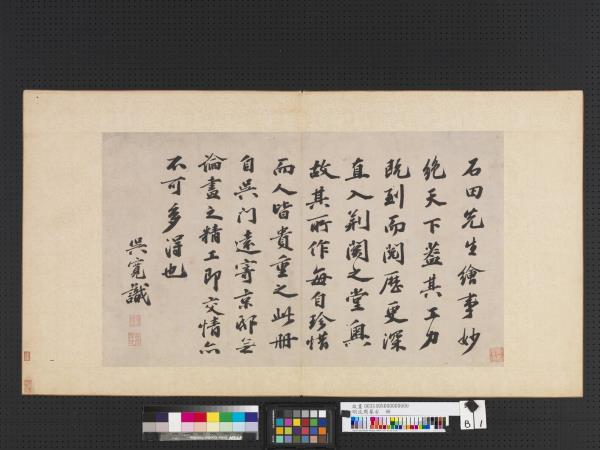 石田先生繪事妙
絶天下蓋其工力
既到而閱歷更深
直入荊關之堂奧
故其所作每自珍惜
而人皆貴重之此冊
自吳門遠寄京邸無
論畫之精工即交情亦
不可多得也
吳寬識
B 1